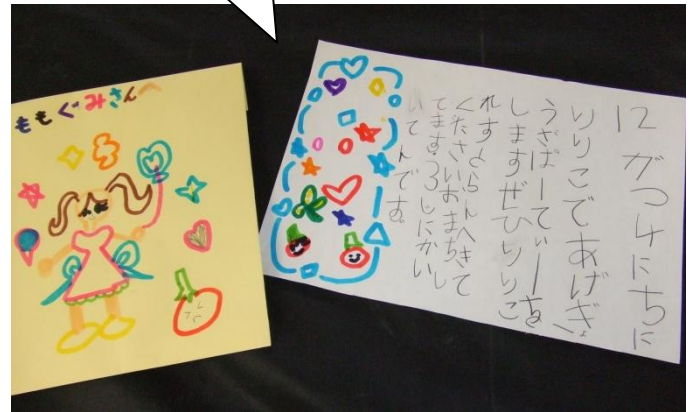 ももぐみさんへ
12がつ4にちに
りりこであげぎょ
うざぱーてぃーを
しますぜひりりこ
れすとらんへきて
くださいおまちし
てます。3じにかい
いてんです。